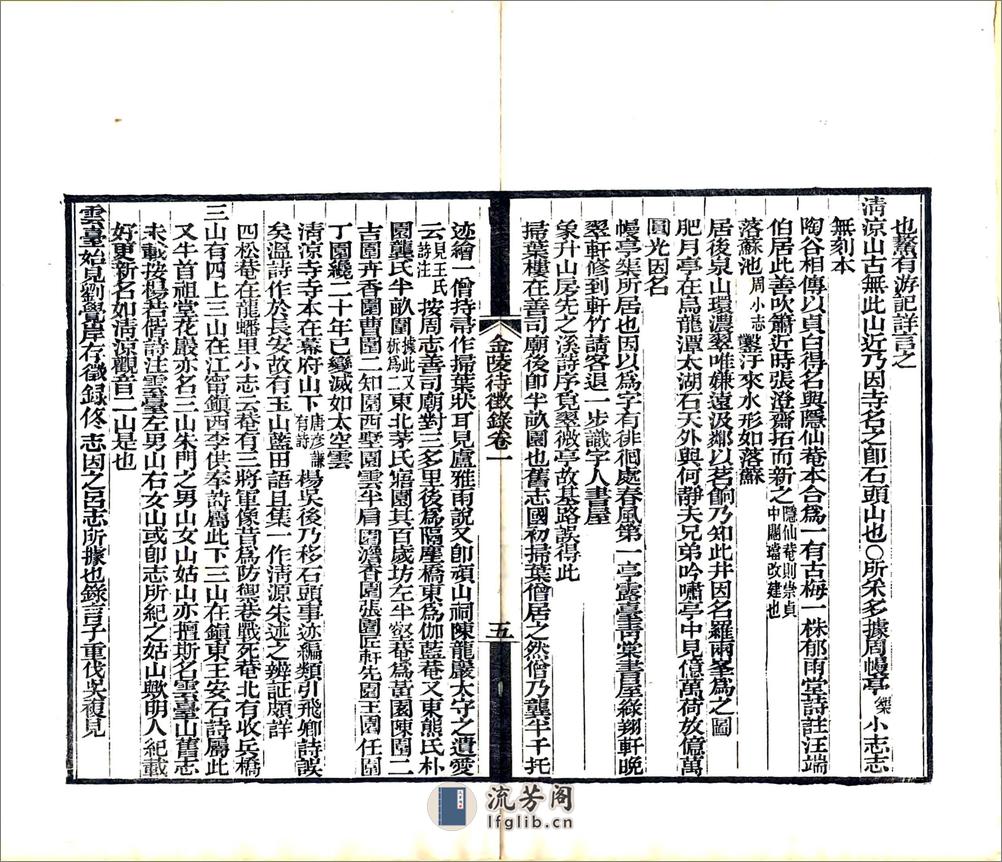 也鰲有游記詳言之
清凉山古無此山近乃因寺名之卽石頭山也〇所采多據周幔亭榘小志志
無刻本
陶谷相傳以貞白得名與隱仙菴本合爲一有古梅一株郁雨堂詩註汪端
伯居此善吹簫近時張澄齋拓而新之隱仙菴則崇貞中閹璫改建也
落蘇池周小志鑿汙來水形如落蘇
居後泉山環濃翠唯嫌遠汲鄰以茗餉乃知此井因名羅兩峯爲之圖
肥月亭在烏龍潭太湖石天外與何靜夫兄弟吟嘯亭中見億萬荷放億萬
圓光因名
幔亭榘所居也因以爲字有徘徊處春風第一亭露臺靑棠書屋綠翔軒晚
翠軒修到軒竹請客退一步識字人書屋
象升山房先之溪詩序負翠微亭故基路誤得此
掃葉樓在善司廟後卽半畝園也舊志國初掃葉僧居之然僧乃龔半千托
金陵待徵錄卷一
五
迹繪一僧持帚作掃葉狀耳見盧雅雨說又卽頑山祠陳龍巖太守之遺愛
云見王氏詩注按周志善司廟對三多里後爲隔塵橋東爲伽藍菴又東熊氏朴
園龔氏半畝園據此又析爲二東北茅氏寤園其百歲坊左半壑菴爲黃園陳園二
吉園卉香園曹園二知園西墅園雲半肩園澹香園張園匠軒先園王園任園
丁園纔二十年已變滅如太空雲
清凉寺寺本在幕府山下唐彦謙有詩楊吳後乃移石頭事迹編類引飛卿詩誤
矣溫詩作於長安故有玉山藍田語且集一作清源朱述之辨証頗詳
四松菴在龍蟠里小志云菴有三將軍像昔爲防禦巷戰死菴北有收兵橋
三山有四上三山在江甯鎭西李供奉詩屬此下三山在鎭東王安石詩屬此
又牛首祖堂花巖亦名三山朱門之男山女山姑山亦擅斯名雲臺山舊志
未載按楊若偕詩注雲臺左男山右女山或卽志所紀之姑山歟明人紀載
好更新名如清源觀音二山是也
雲臺始見劉覺岸存徵錄佟志因之呂志所據也錄言子重伐吳複見